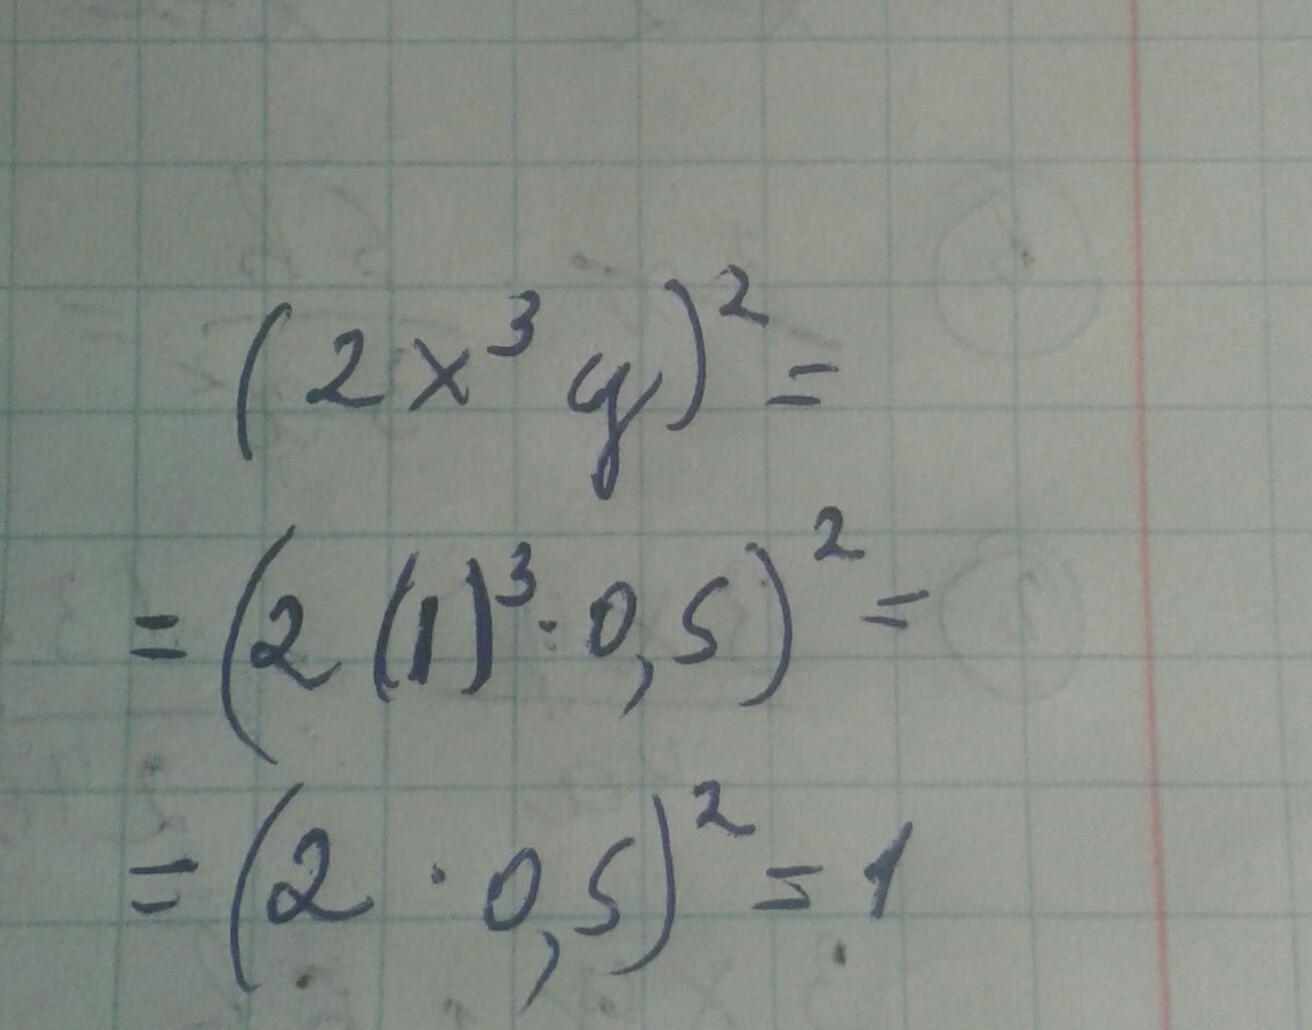 (2x³y)²=
=(2(1)³·0,5)²=
=(2·0,5)²=1